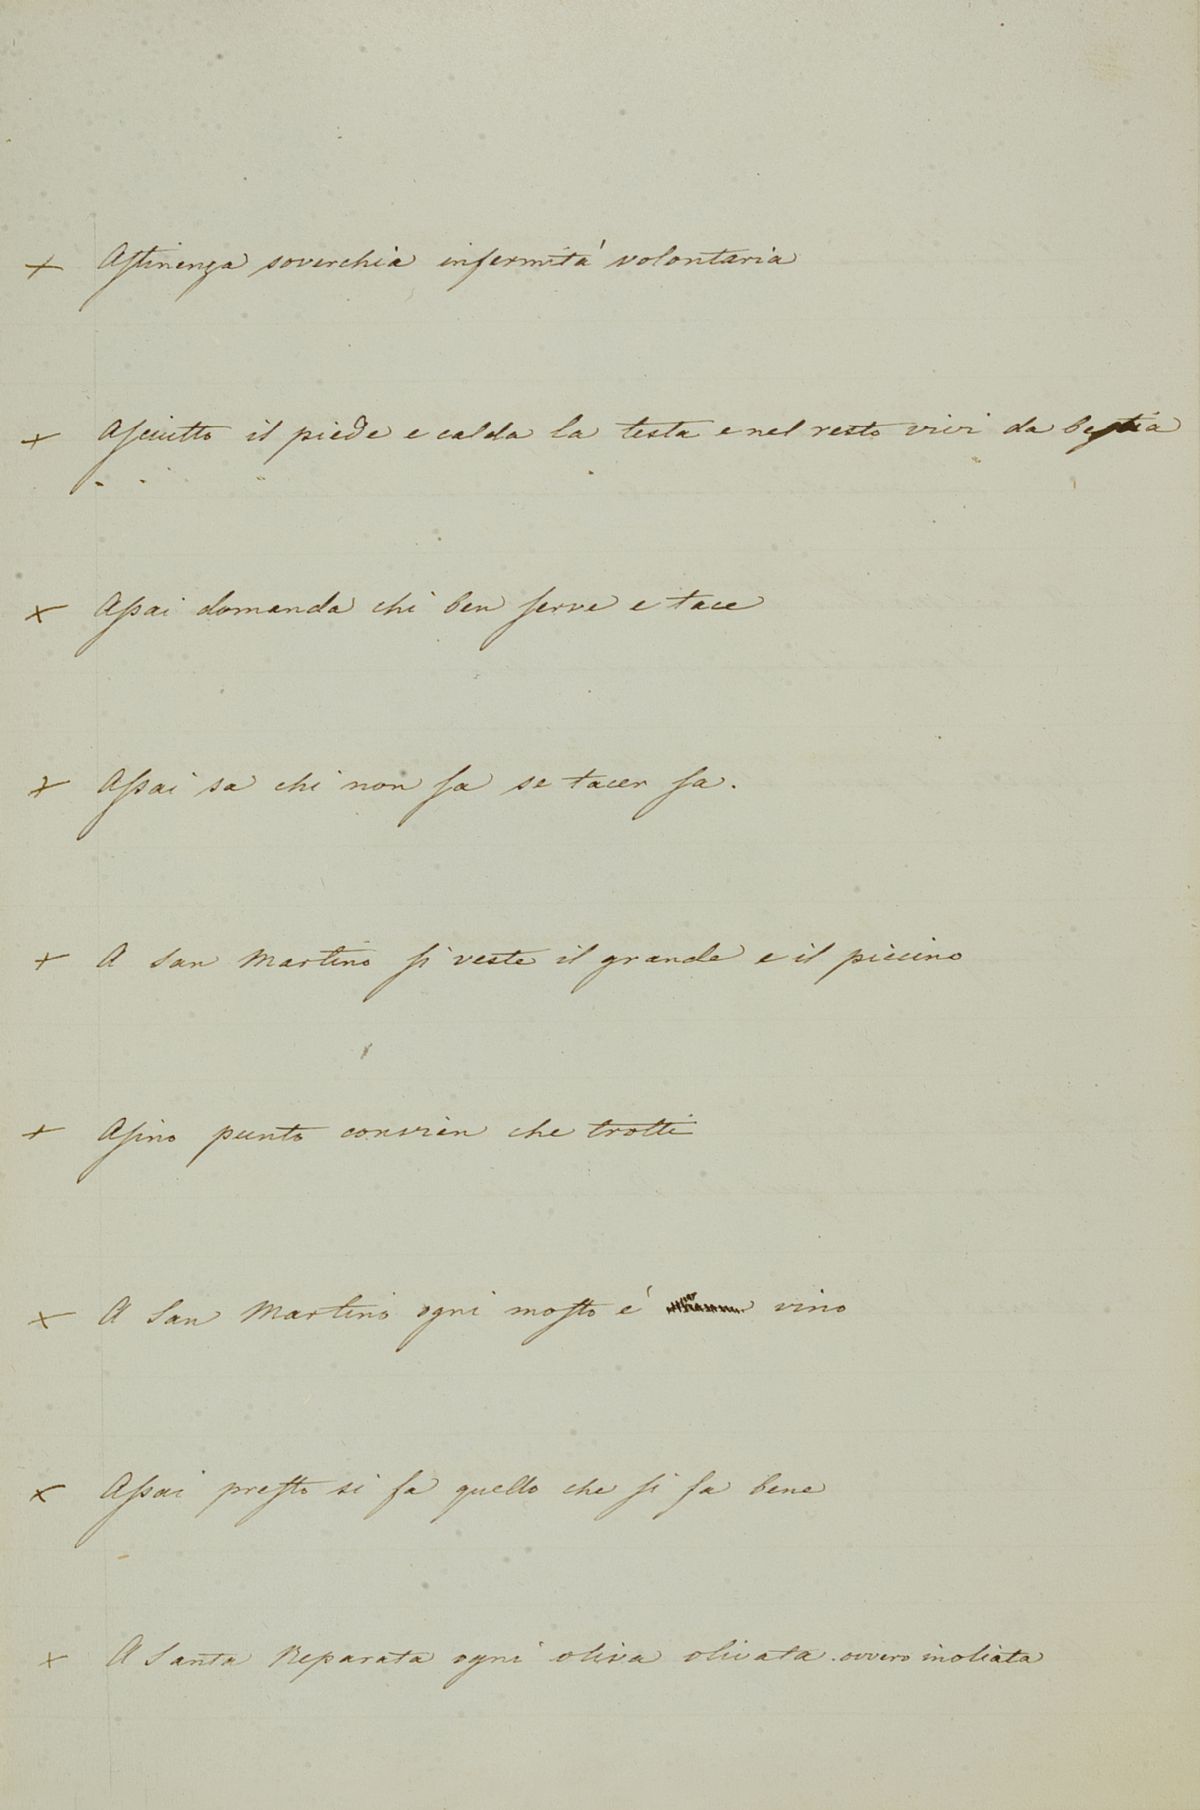 + Astinenza soverchia infermitá volontaria
+ Asciutto il piede e calda la testa e nel resto vivi da bestia
+ Assai domanda chi ben serve e tace
+ Assai sa chi non sa se tacer sa.
+ A San Martino si veste il grande e il piccino
+ Asino punto convien che trotti
+ A San Martino ogni mosto é vino
+ Assai presto si fa quello che si fa bene
+ A Santa Reparata ogni oliva olivata. ovvero inoliata